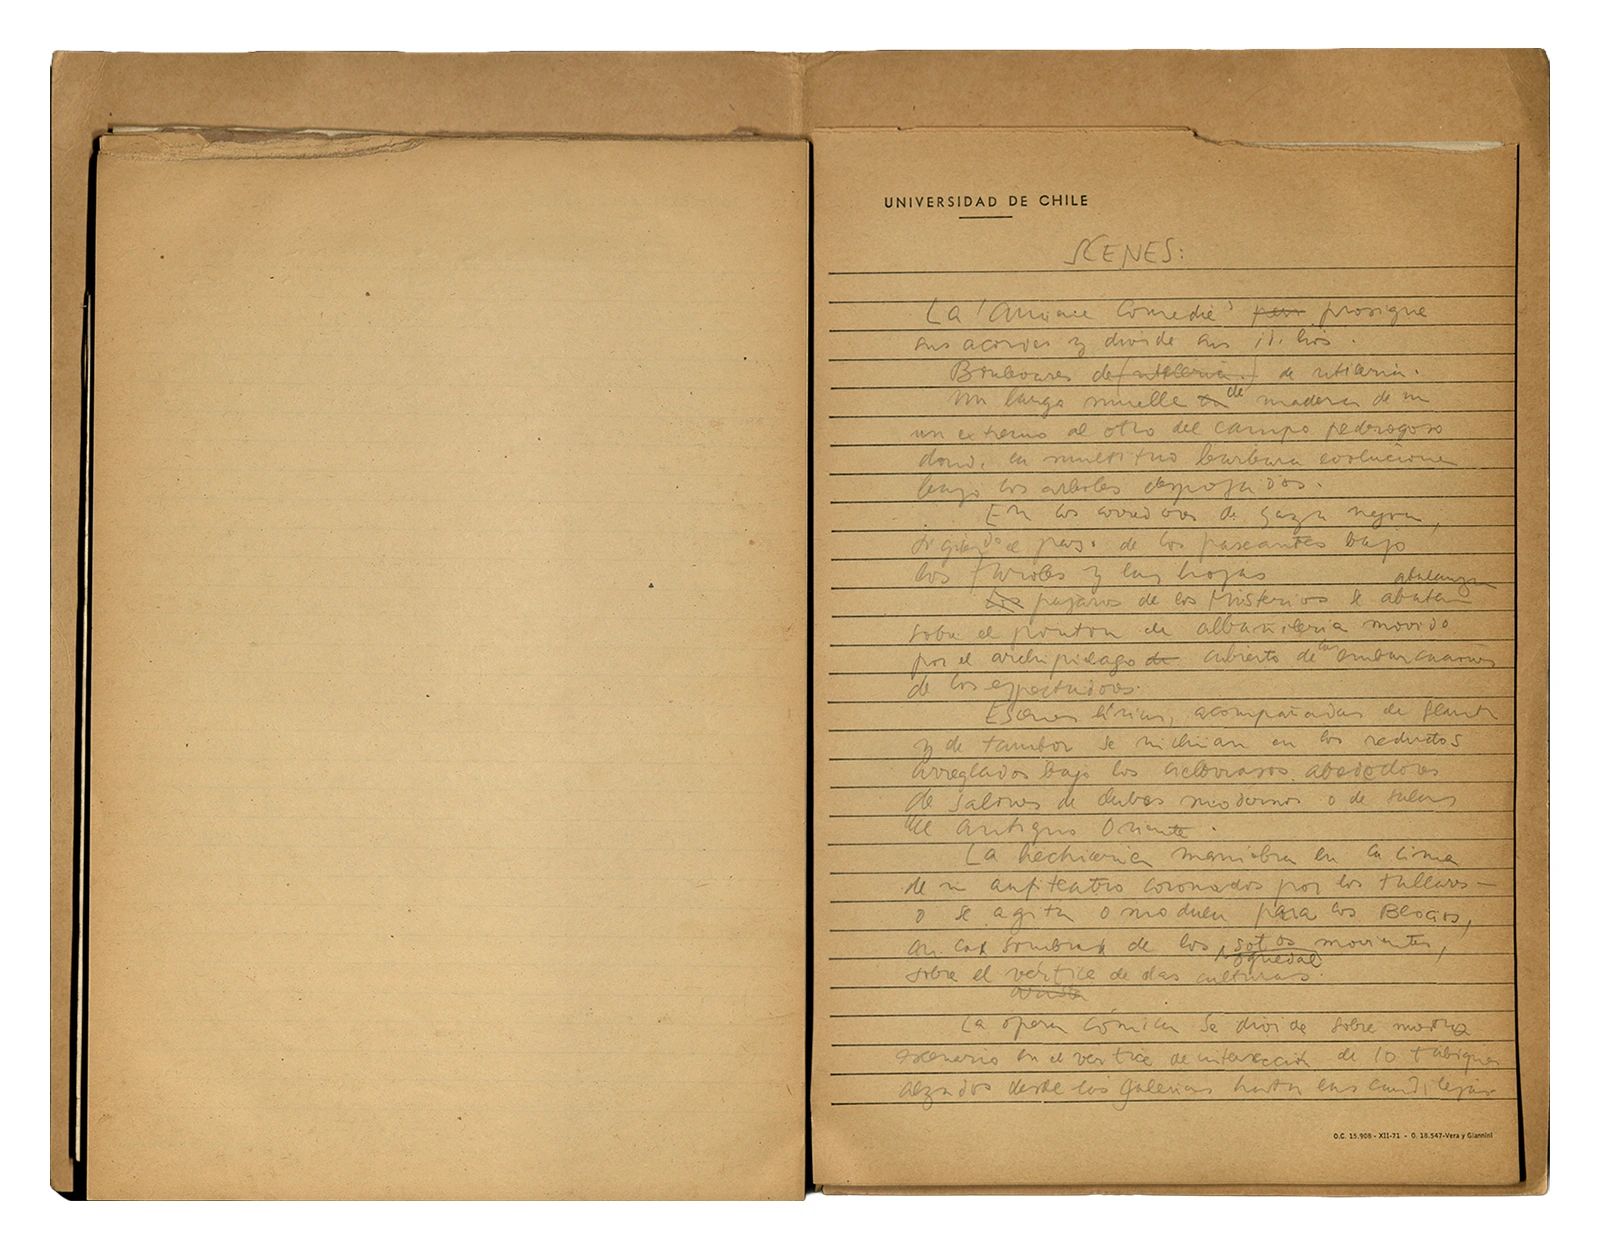 UNIVERSIDAD DE CHILE
SCENES:
La "Ancienne Comedie" prosigue
sus acordes y divide sus idilios.
Boulevares de (utilería.) de utilería.
Un largo muelle de madera de un
un extremo al otro del campo pedregoso
donde la multitud barbara evoluciona
bajo los arboles despojados.
En los corredores de gaza negra,
siguiendo el paso de los paseantes bajo
los faroles y las hojas
abalanza
Los pajaros de los Misterios se abaten
sobre el pontón de albañilería movido
por el archipielago de cubierto de las embarcaciones
de los espectadores.
Escenas líricas, acompañadas de flauta
y de tambor se inclinan en los reductos
arreglados bajo los cielorrasos, alrededores
de salones de clubes modernos o de salas
del antiguo Oriente.
La hechicería maniobra en la cima
de un anfiteatro coronados por los tallares
o se agita o modula para los Beocios,
en la sombra de los sotos movientes,
oquedal
sobre el vértice de las culturas.
arista
La ópera cómica se divide sobre nuestro
escenario en el vertice de intersección de 10 tabiques
alzados desde las galerías hasta las candilejas
O.C. 15.908 - XII-71 - O. 18.547-Vera y Giannini